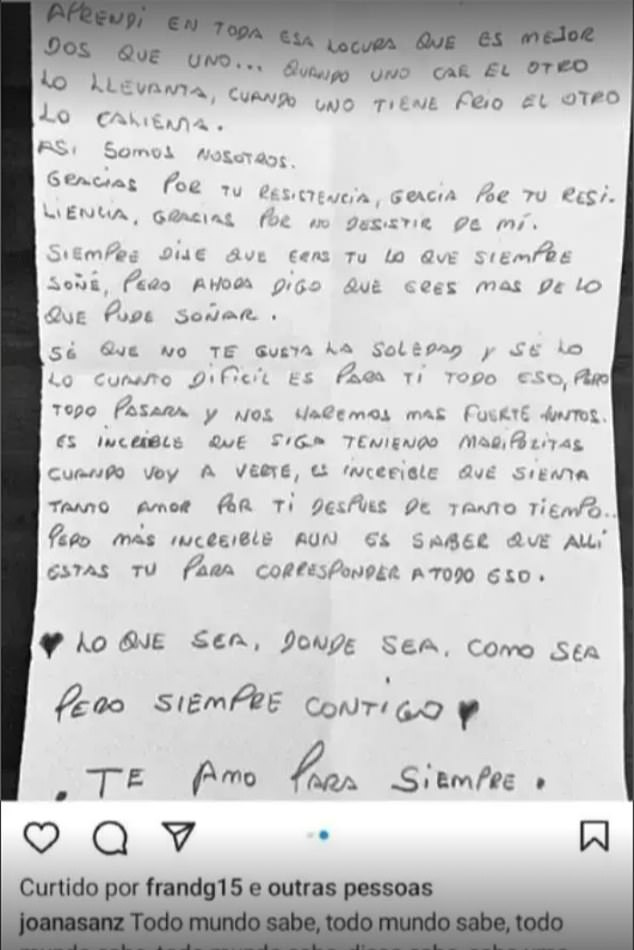 APRENDI EN TODA ESA LOCURA QUE ES MEJOR
DOS QUE UNO... QUANDO UNO CAE EL OTRO
LO LLEVANTA, CUANDO UNO TIENE FRIO EL OTRO
LO CALIENTA.
ASI SOMOS NOSOTROS.
GRACIAS POR TU RESISTENCIA, GRACIA POR TU RESI-
LIENCIA, GRACIAS POR NO DESISTIR DE MÍ.
SIEMPRE DIJE QUE ERAS TU LO QUE SIEMPRE
SOÑÉ, PERO AHORA DIGO QUE ERES MAS DE LO
QUE PUDE SOÑAR.
SÉ QUE NO TE GUSTA LA SOLEDAD Y SÉ LO
LO CUANTO DIFICIL ES PARA TI TODO ESO, PERO
TODO PASARA Y NOS HAREMOS MAS FUERTE JUNTOS.
ES INCREIBLE QUE SIGA TENIENDO MARIPOZITAS
CUANDO VOY A VERTE, ES INCREIBLE QUE SIENTA
TANTO AMOR POR TI DESPUES DE TANTO TIEMPO..
PERO MÁS INCREIBLE AUN ES SABER QUE ALLÍ
ESTAS TU PARA CORRESPONDER A TODO ESO.
♥ LO QUE SEA, DONDE SEA, COMO SEA
PERO SIEMPRE CONTIGO ♥
. TE AMO PARA SIEMPRE.
Curtido por frandg15 e outras pessoas
joanasanz Todo mundo sabe, todo mundo sabe, todo